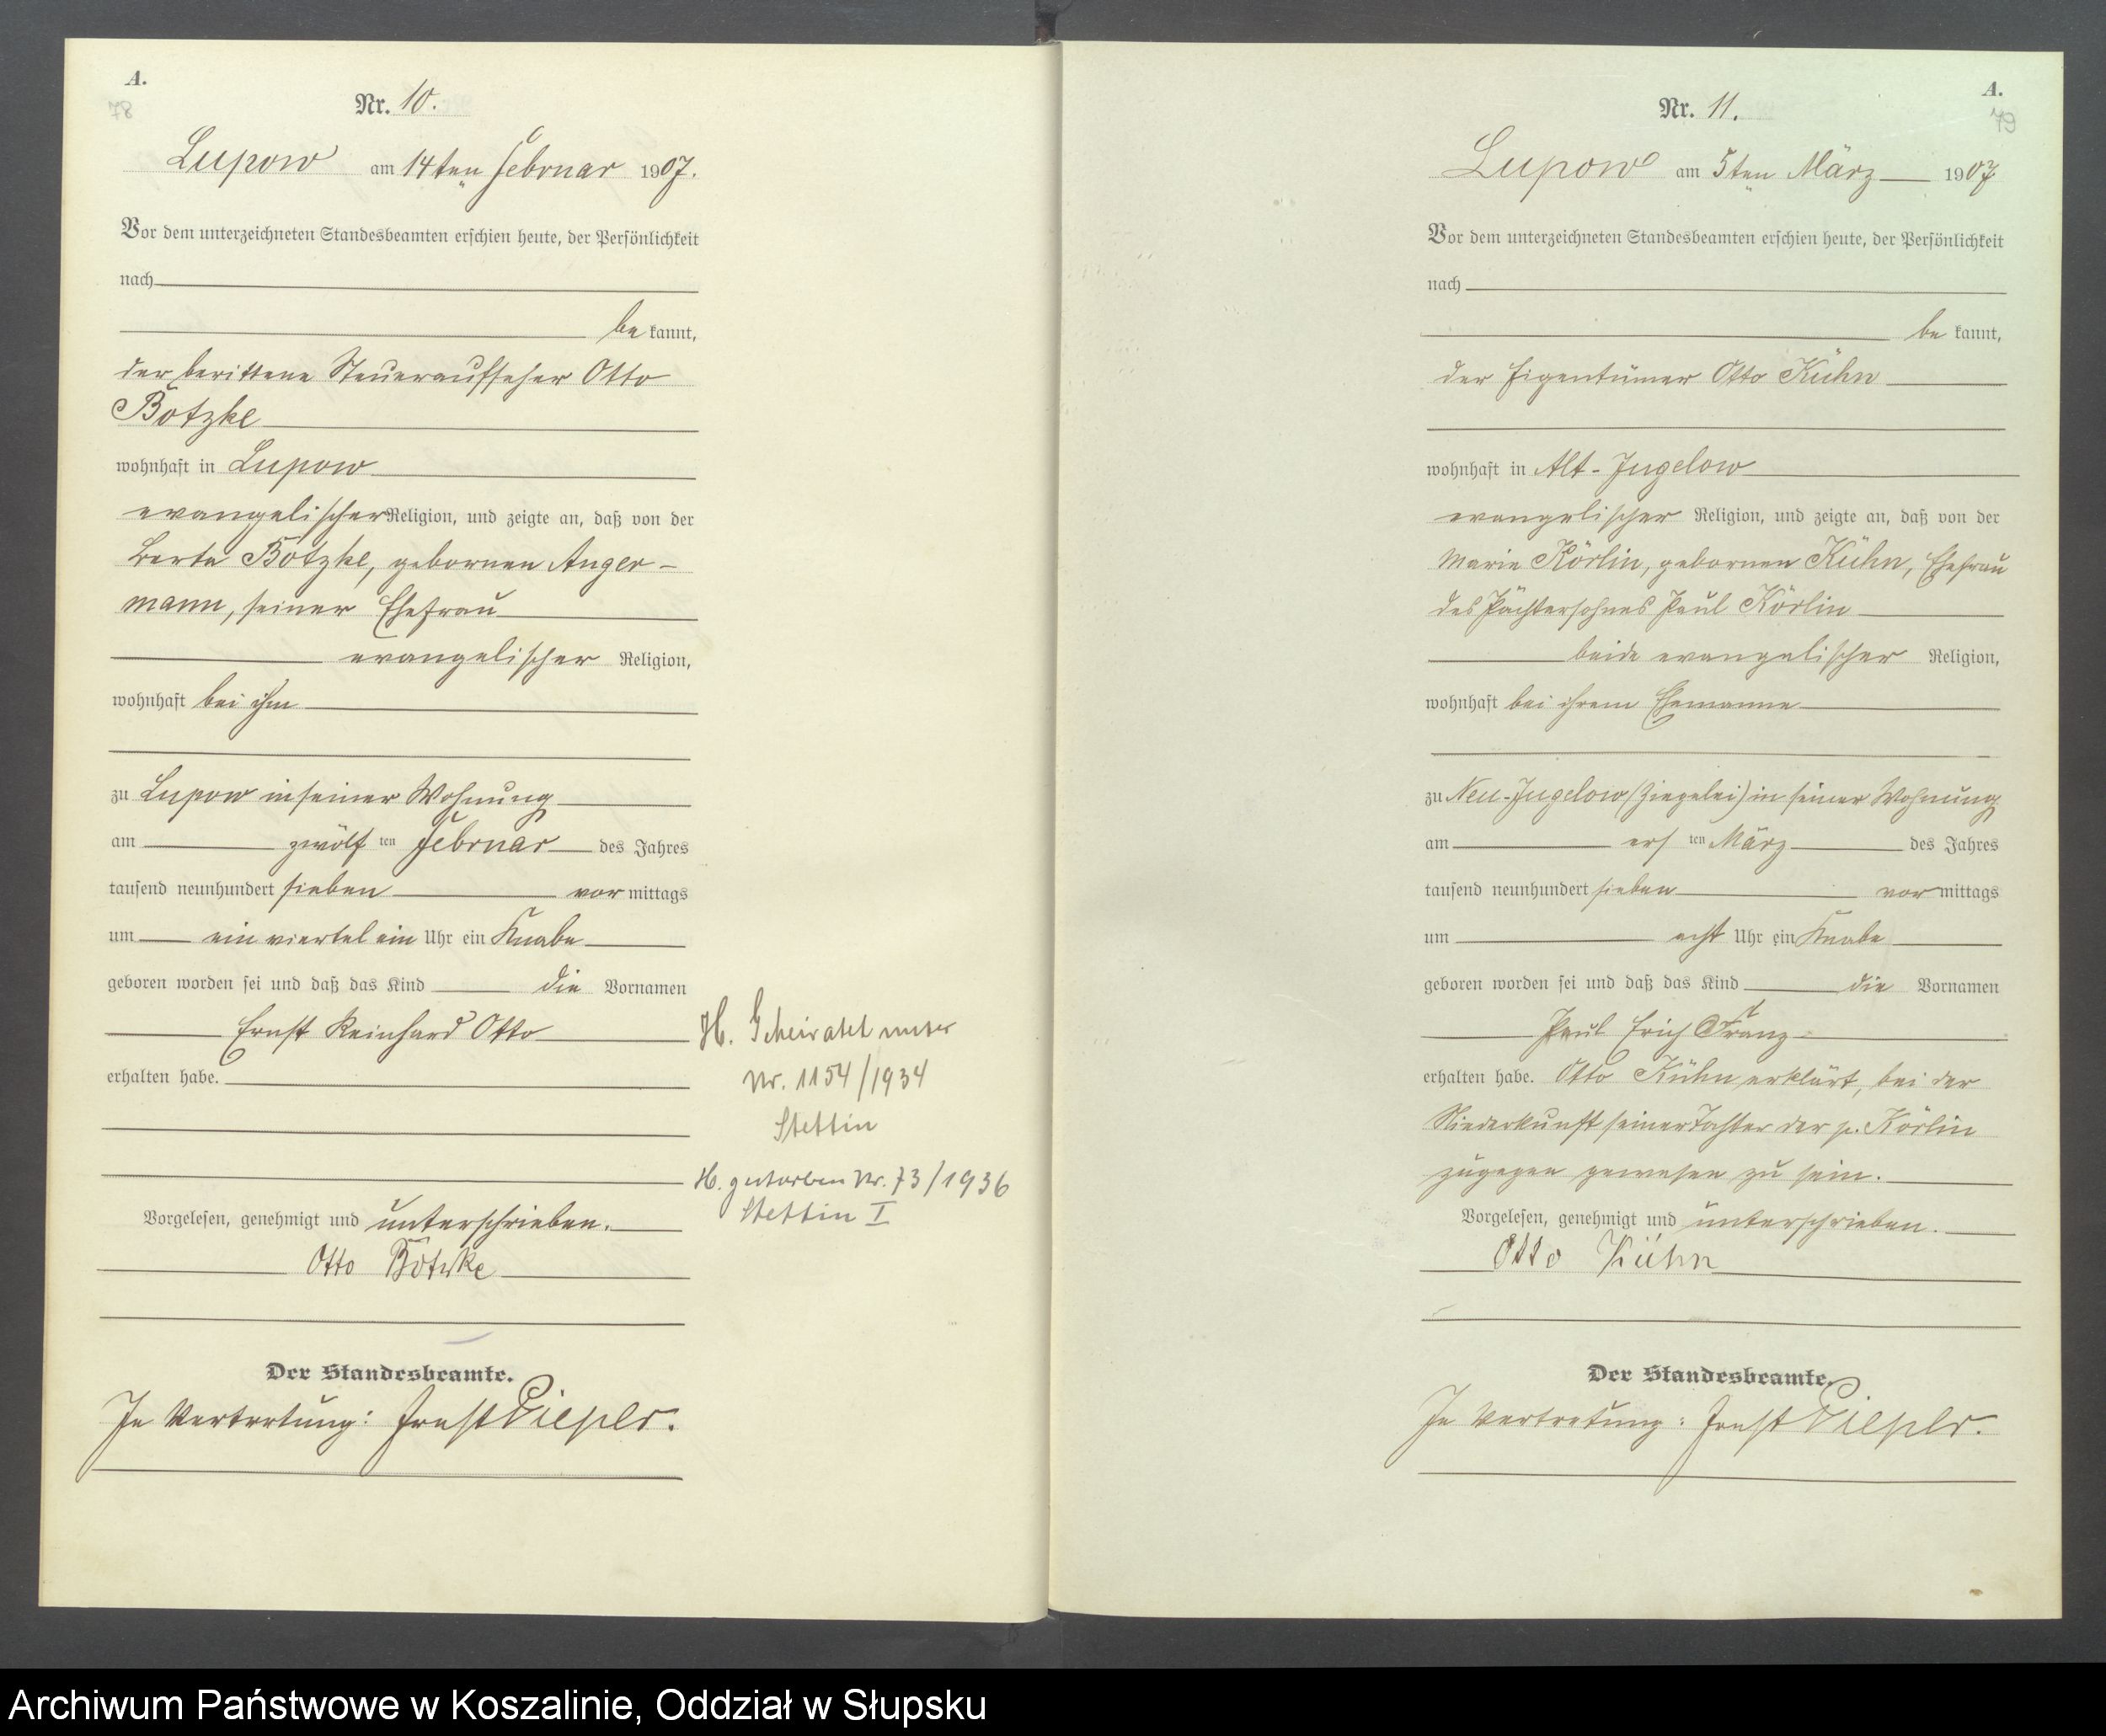 A.
78
Nr. 10.
Lupow am 14ten Februar 1907.
Vor dem unterzeichneten Standesbeamten erschien heute, der Persönlichkeit
nach
be kannt,
der berittene Steueraufseher Otto
Botzke
wohnhaft in Lupow
evangelischer Religion, und zeigte an, daß von der
Berta Botzke, gebornen Anger-
mann, seiner Ehefrau
evangelischer Religion,
wohnhaft bei ihm
zu Lupow in seiner Wohnung
am zwölf ten Februar des Jahres
tausend neunhundert sieben vor mittags
um ein viertel ein Uhr ein Knabe
geboren worden sei und daß das Kind die Vornamen
Ernst Reinhard Otto
erhalten habe.
H. Geheiratet unter
Nr. 1154/1934
Stettin
H. gestorben Nr. 73/1936
Stettin I
Vorgelesen, genehmigt und unterschrieben.
Otto Botzke
Der Standesbeamte.
In Vertretung: Ernst Pieper.
A.
79
Nr. 11.
Lupow am 5ten März 1907
Vor dem unterzeichneten Standesbeamten erschien heute, der Persönlichkeit
nach
be kannt,
der Eigentümer Otto Kühn
wohnhaft in Alt-Jugelow
evangelischer Religion, und zeigte an, daß von der
Marie Körlin, gebornen Kühn, Ehefrau
des Pächtersohnes Paul Körlin
beide evangelischer Religion,
wohnhaft bei ihrem Ehemanne
zu Neu-Jugelow (Ziegelei) in seiner Wohnung
am ers ten März des Jahres
tausend neunhundert sieben vor mittags
um acht Uhr ein Knabe
geboren worden sei und daß das Kind die Vornamen
Paul Erich Franz
erhalten habe. Otto Kühn erklärt, bei der
Niederkunft seiner Tochter der p. Körlin
zugegen gewesen zu sein.
Vorgelesen, genehmigt und unterschrieben.
Otto Kühn
Der Standesbeamte.
In Vertretung: Ernst Pieper.
Archiwum Państwowe w Koszalinie, Oddział w Słupsku